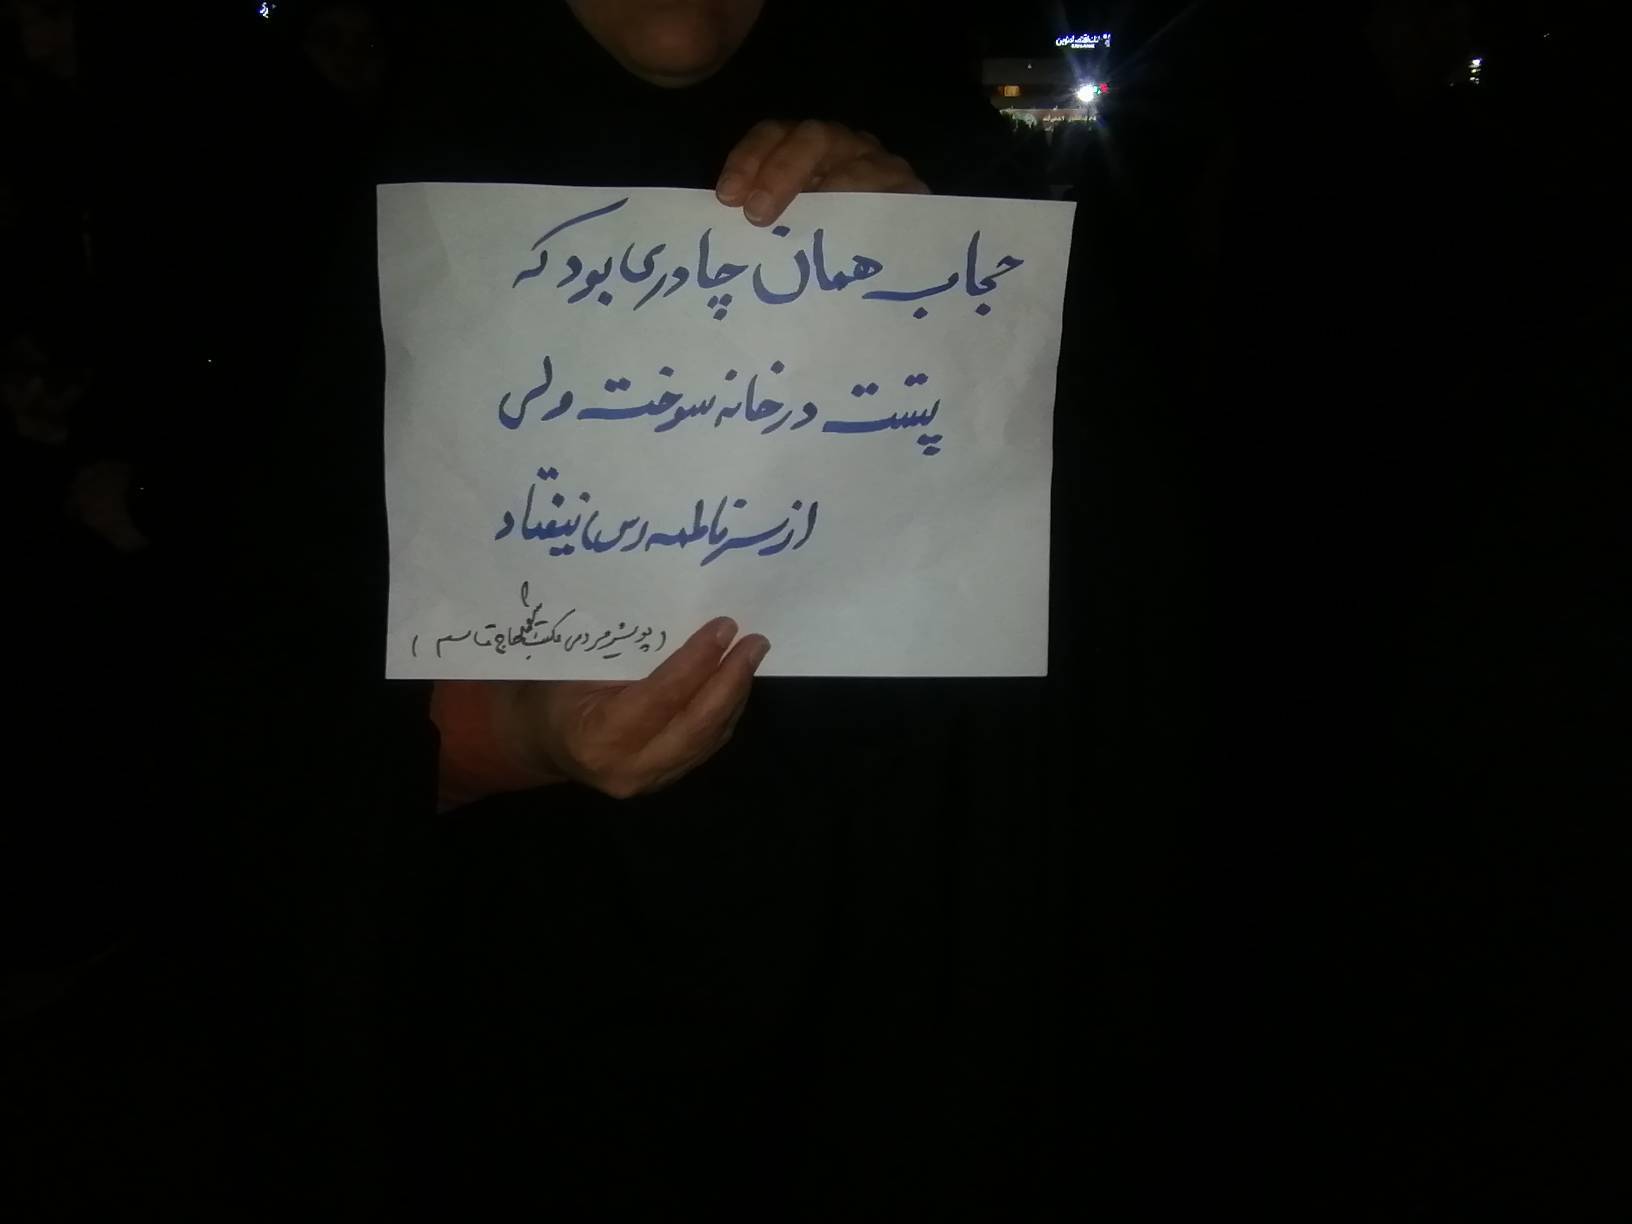 حجاب همان چادری بود که
پشت در خانه سوخت ولی
از سر فاطمه (س) نیفتاد
(پویش مردمی مکتب حاج قاسم)